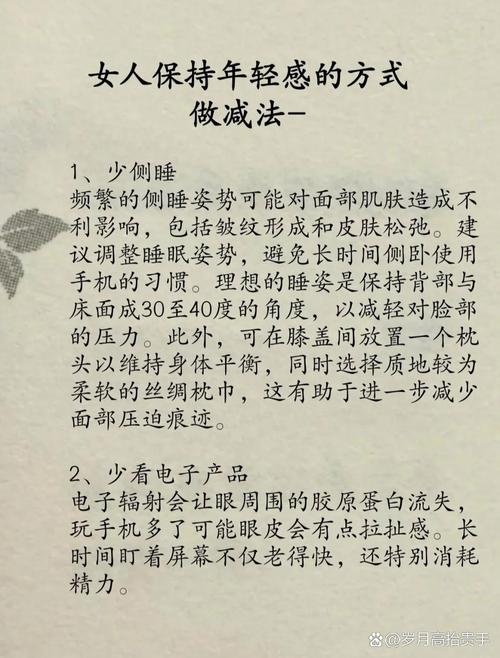 女人保持年轻感的方式
做减法-
1、少侧睡
频繁的侧睡姿势可能对面部肌肤造成不
利影响，包括皱纹形成和皮肤松弛。建
议调整睡眠姿势，避免长时间侧卧使用
手机的习惯。理想的睡姿是保持背部与
床面成30至40度的角度，以减轻对脸部
的压力。此外，可在膝盖间放置一个枕
头以维持身体平衡，同时选择质地较为
柔软的丝绸枕巾，这有助于进一步减少
面部压迫痕迹。
2、少看电子产品
电子辐射会让眼周围的胶原蛋白流失，
玩手机多了可能眼皮会有点拉扯感。长
时间盯着屏幕不仅老得快，还特别消耗
精力。
@岁月高抬贵手